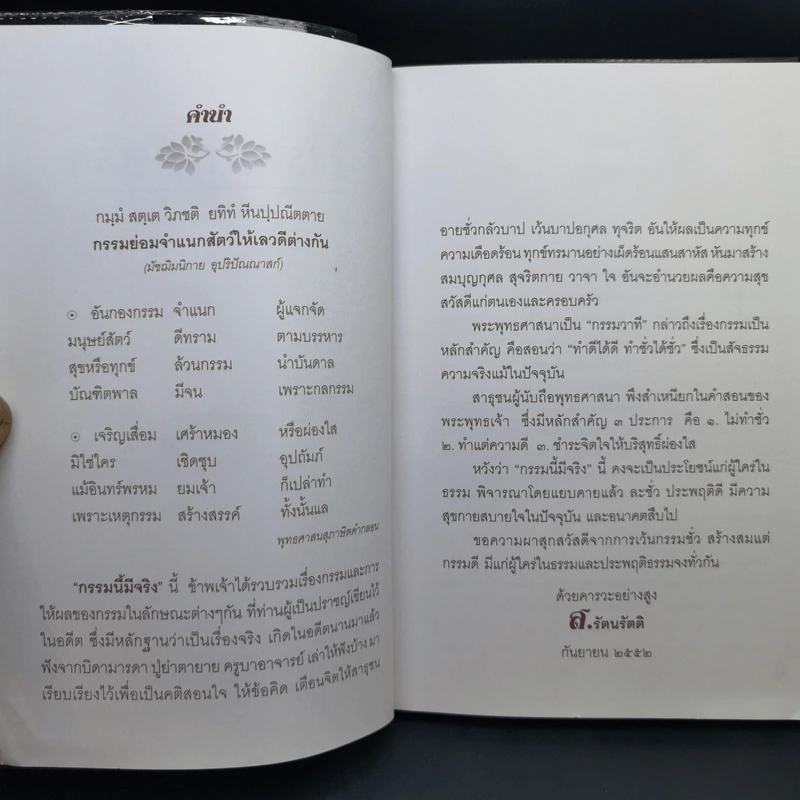 คำนำ
กมฺมํ สตฺเต วิภชติ ยทิทํ หีนปฺปณีตตาย
กรรมย่อมจำแนกสัตว์ให้เลวดีต่างกัน
(มัชฌิมนิกาย อุปริปัณณาสก์)
๏ อันกองกรรม จำแนก ผู้แจกจัด
มนุษย์สัตว์ ดีทราม ตามบรรหาร
สุขหรือทุกข์ ล้วนกรรม นำบันดาล
บัณฑิตพาล มีจน เพราะกลกรรม
๏ เจริญเสื่อม เศร้าหมอง หรือผ่องใส
มิใช่ใคร เชิดชุบ อุปถัมภ์
แม้อินทร์พรหม ยมเจ้า ก็เปล่าทำ
เพราะเหตุกรรม สร้างสรรค์ ทั้งนั้นแล
พุทธศาสนสุภาษิตคำกลอน
"กรรมนี้มีจริง" นี้ ข้าพเจ้าได้รวบรวมเรื่องกรรมและการ
ให้ผลของกรรมในลักษณะต่างๆกัน ที่ท่านผู้เป็นปราชญ์เขียนไว้
ในอดีต ซึ่งมีหลักฐานว่าเป็นเรื่องจริง เกิดในอดีตนานมาแล้ว
ฟังจากบิดามารดา ปู่ย่าตายาย ครูบาอาจารย์ เล่าให้ฟังบ้าง มา
เรียบเรียงไว้เพื่อเป็นคติสอนใจ ให้ข้อคิด เตือนจิตให้สาธุชน
อายชั่วกลัวบาป เว้นบาปอกุศล ทุจริต อันให้ผลเป็นความทุกข์
ความเดือดร้อน ทุกข์ทรมานอย่างเผ็ดร้อนแสนสาหัส หันมาสร้าง
สมบุญกุศล สุจริตกาย วาจา ใจ อันจะอำนวยผลคือความสุข
สวัสดีแก่ตนเองและครอบครัว
พระพุทธศาสนาเป็น "กรรมวาที" กล่าวถึงเรื่องกรรมเป็น
หลักสำคัญ คือสอนว่า "ทำดีได้ดี ทำชั่วได้ชั่ว" ซึ่งเป็นสัจธรรม
ความจริงแม้ในปัจจุบัน
สาธุชนผู้นับถือพุทธศาสนา พึงสำเหนียกในคำสอนของ
พระพุทธเจ้า ซึ่งมีหลักสำคัญ ๓ ประการ คือ ๑. ไม่ทำชั่ว
๒. ทำแต่ความดี ๓. ชำระจิตใจให้บริสุทธิ์ผ่องใส
หวังว่า "กรรมนี้มีจริง" นี้ คงจะเป็นประโยชน์แก่ผู้ใคร่ใน
ธรรม พิจารณาโดยแยบคายแล้ว ละชั่ว ประพฤติดี มีความ
สุขกายสบายใจในปัจจุบัน และอนาคตสืบไป
ขอความผาสุกสวัสดีจากการเว้นกรรมชั่ว สร้างสมแต่
กรรมดี มีแก่ผู้ใคร่ในธรรมและประพฤติธรรมจงทั่วกัน
ด้วยคารวะอย่างสูง
ส.รัตนรัตติ
กันยายน ๒๕๕๒